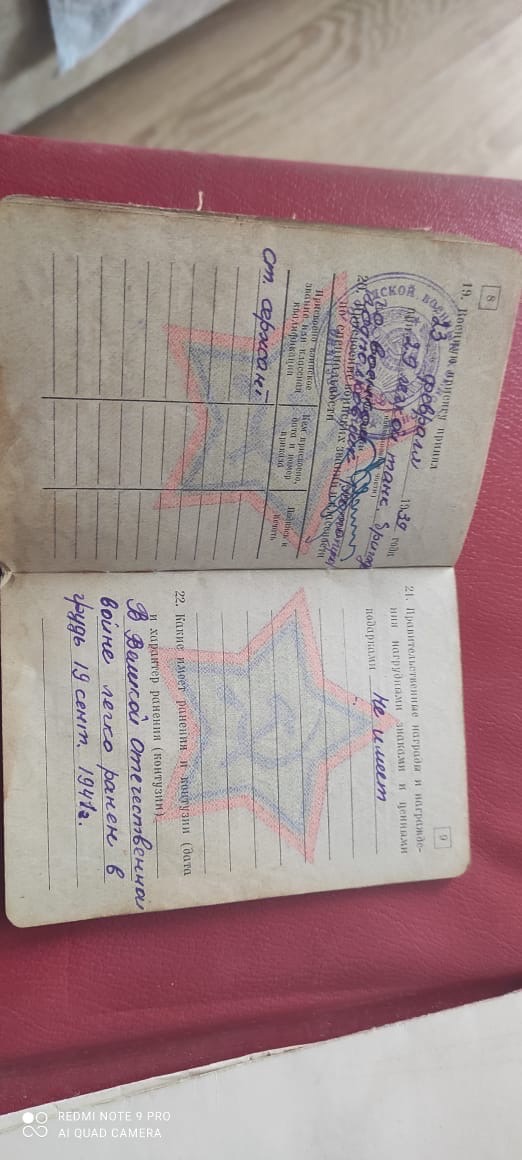 8
19. Военную присягу принял
23 февраля 1939 года
при 29 легкой танк. бригаде
20. Присвоение воинских званий и
по специальности
Присвоено воинское
звание или классная
квалификация
Кем присвоено,
дата и номер
приказа
Подпись и
печать
ст. сержант
9
21. Правительственные награды и награжде-
ния нагрудными знаками и ценными
подарками не имеет
22. Какие имеет ранения и контузии (дата
и характер ранения (контузии)
В Великой Отечественной
войне легко ранен в
грудь 19 сент. 1941г.
REDMI NOTE 9 PRO
AI QUAD CAMERA